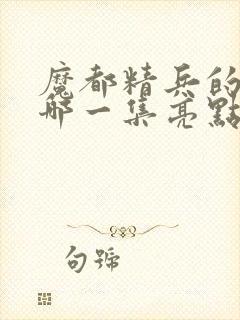 魔都精兵的
哪一集亮點
句號